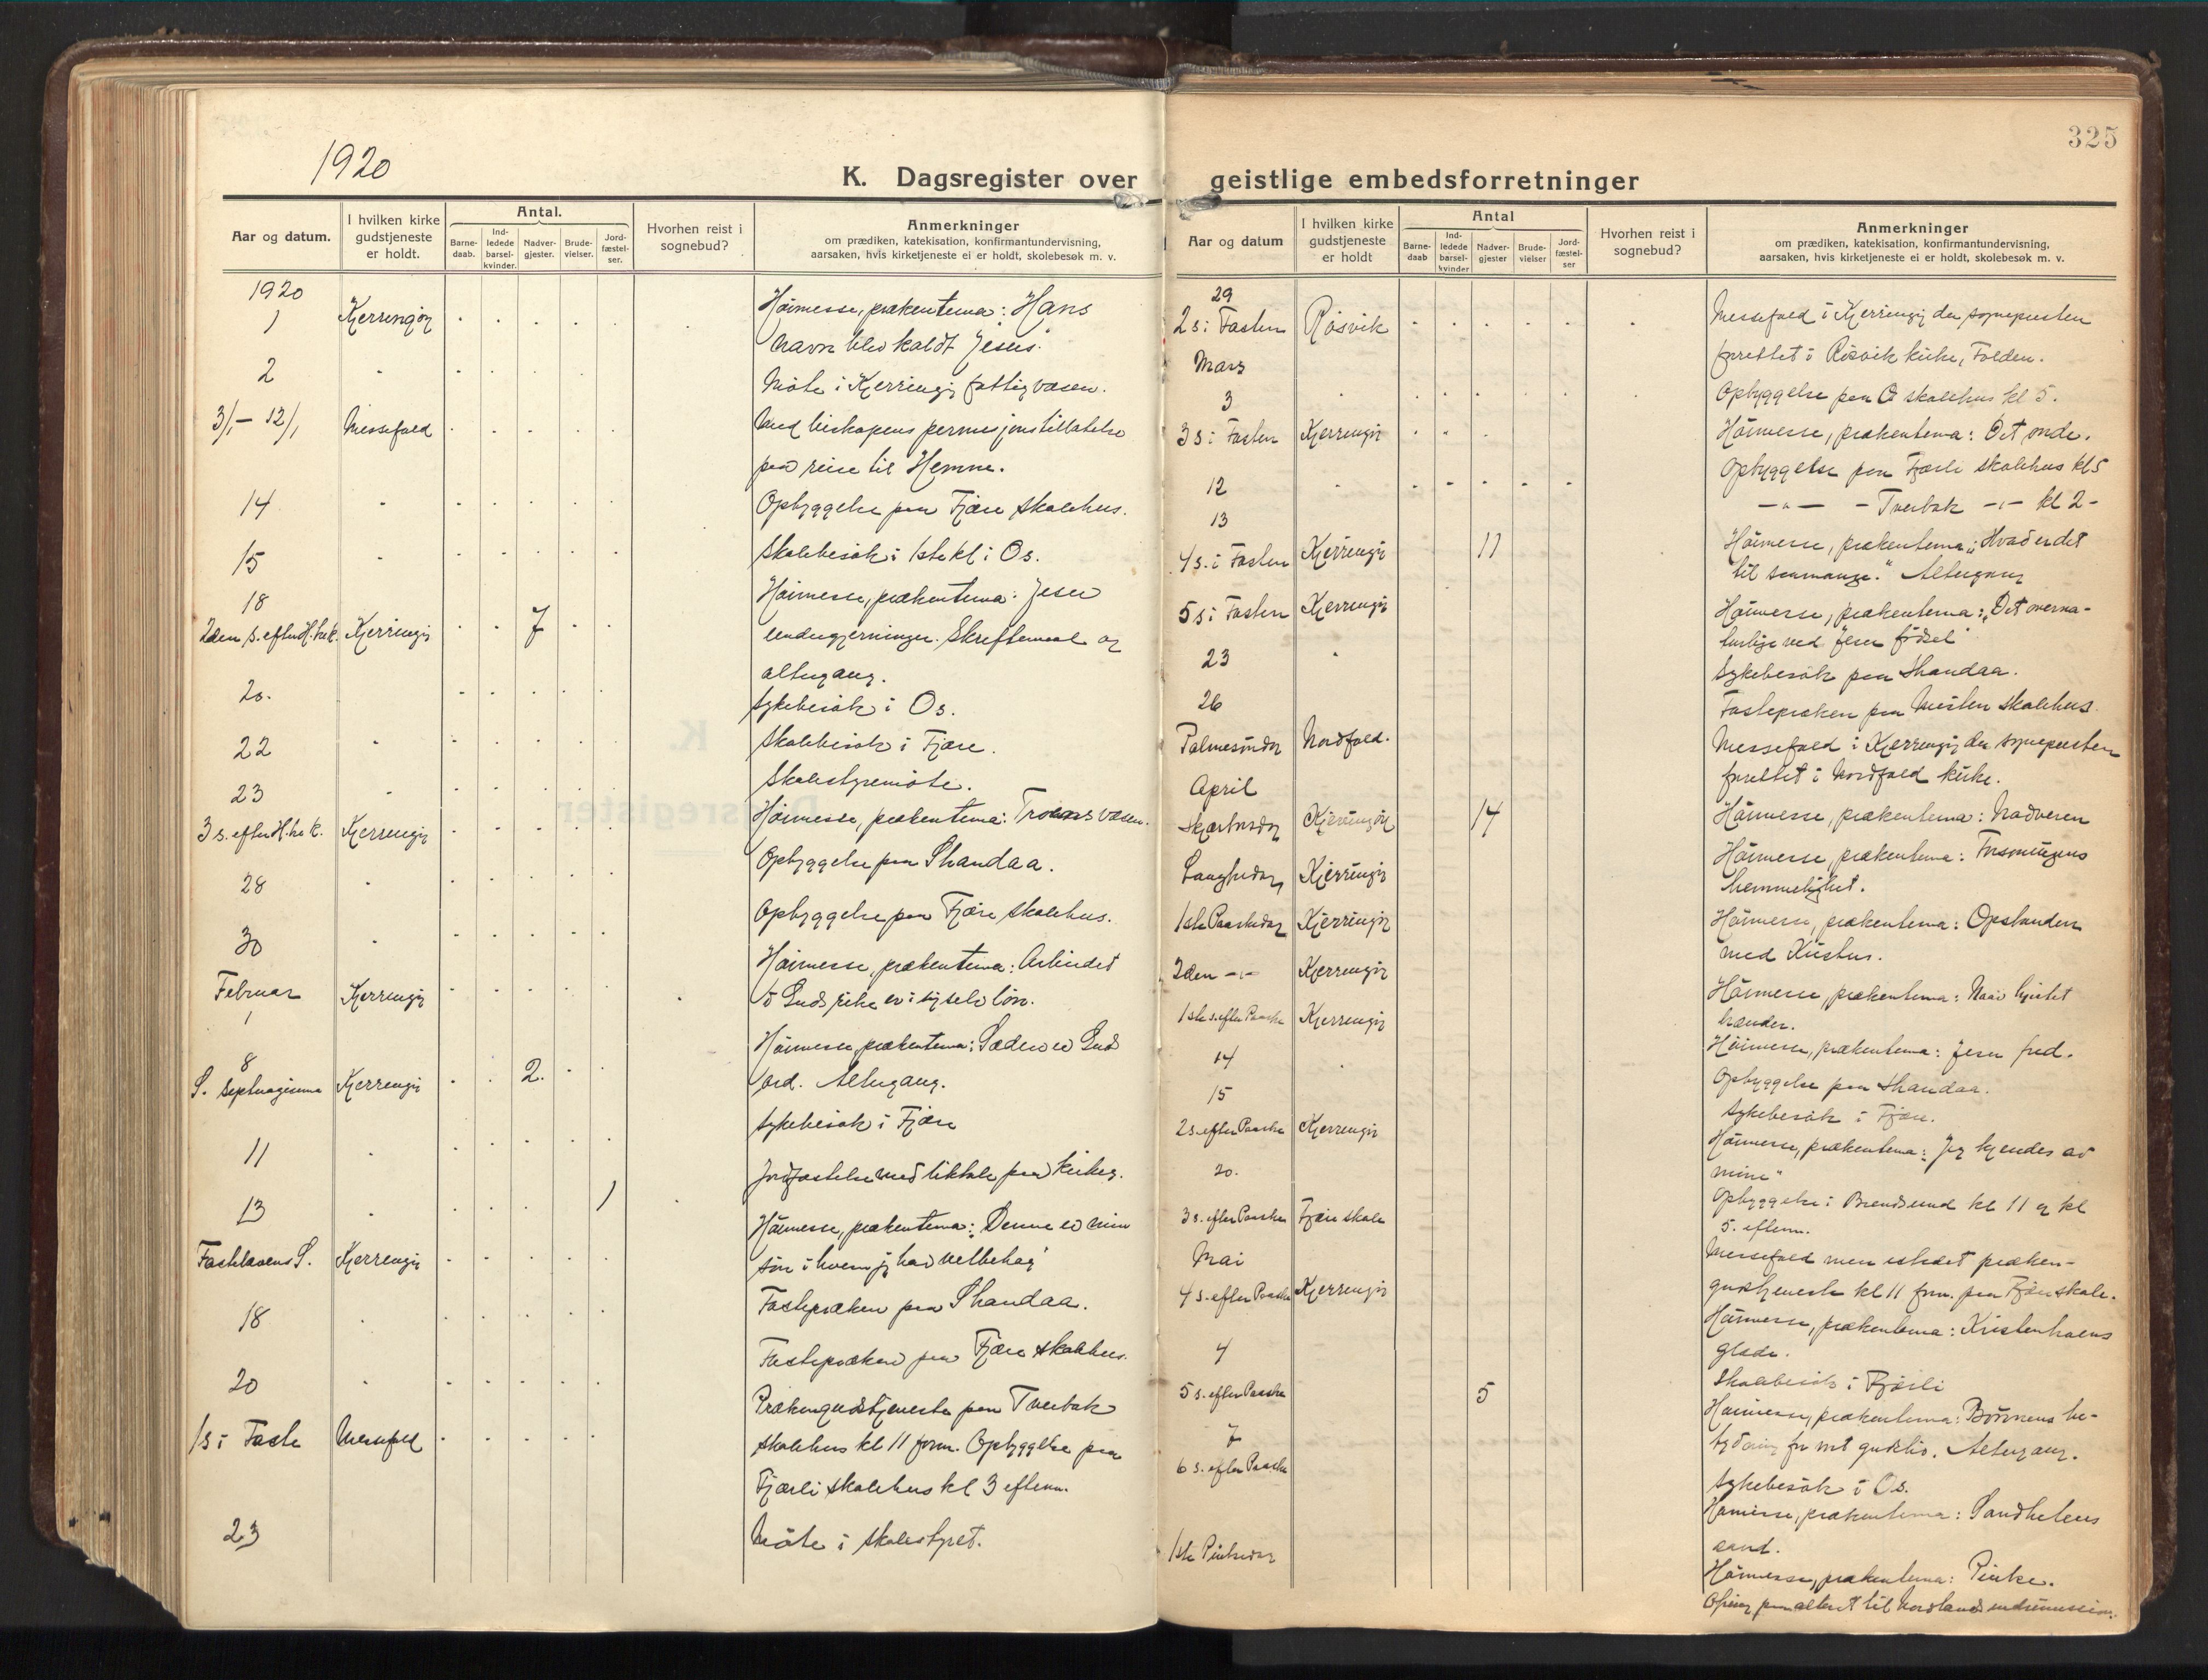 1920
K. Dagsregister over
Aar og datum.
I hvilken kirke gudstjeneste er holdt.
Antal.
Barne-daab.
Ind-ledede barsel-kvinder.
Nadver-gjester.
Brude-vielser.
Jord-fæstel-ser.
Hvorhen reist i sognebud?
Anmerkninger
om prædiken, katekisation, konfirmantundervisning,
aarsaken, hvis kirketjeneste ei er holdt, skolebesøk m. v.
1920
1 Kjerringøy Höimesse, prækentema: Hans
navn blev kaldt Jesus.
2 Möte i Kjerringöy fattigvæsen.
3/1 – 12/1 Messefald Med biskopens permisjonstillatelse
paa reise til Hemne.
14 Opbyggelse paa Fjære skolehus.
15 Skolebesök i 1ste kl i Os.
18 Höimesse, prækentema: Jesu
2den s. efter H.tr.k. Kjerringöy 7 undergjerninger. Skriftemaal og
altergang.
20. Sykebesök i Os.
22 Skolebesök i Fjære.
23 Skolestyremöte.
3 s. efter H.tr.k. Kjerringöy Höimesse, prækentema: Troens væsen.
28 Opbyggelse paa Strandaa.
30 Opbyggelse paa Fjære skolehus.
Februar Kjerringöy Höimesse, prækentema: Arbeidet
1 i Guds rike er i sig selv lön.
8 Höimesse, prækentema: Sæden er Guds
S. Septuagesima Kjerringöy 2. ord. Altergang.
11 Sykebesök i Fjære
13 1 Jordfæstelse med liktale paa kirkeg.
Fastelavens S. Kjerringöy Höimesse, prækentema: "Denne er min
sön i hvem jeg har velbehag"
18 Fastepræken paa Strandaa.
20 Fastepræken paa Fjære skolehus.
1 s i Faste Messefald Prækengudstjeneste paa Tverbak
skolehus kl 11 form. Opbyggelse paa
Fjærli skolehus kl 3 efterm.
23 Möte i skolestyret.
325
geistlige embedsforretninger
Aar og datum
I hvilken kirke gudstjeneste er holdt
Antal
Barne-daab
Ind-ledede barsel-kvinder
Nadver-gjester
Brude-vielser
Jord-fæstel-ser
Hvorhen reist i sognebud?
Anmerkninger
om prædiken, katekisation, konfirmantundervisning,
aarsaken, hvis kirketjeneste ei er holdt, skolebesøk m. v.
29
2 s i Fasten Rösvik Messefald i Kjerringöy da sognepresten
forrettet i Rösvik kirke, Folden.
Mars
3 Opbyggelse paa Os skolehus kl 5.
3 s i Fasten Kjerringöy Höimesse, prækentema: Det onde.
12 Opbyggelse paa Fjærli skolehus kl 5
13 – " – – Tverbak – " – kl 2 –
4 s. i Fasten Kjerringöy 11 Höimesse, prækentema: "Hvad er det
til saamange." Altergang
5 s i Fasten Kjerringöy Höimesse, prækentema: "Det overna-
turlige ved Jesu födsel"
23 Sykebesök paa Strandaa.
26 Fastepræken paa skolehus.
Palmesöndag Nordfold. Messefald i Kjerringöy da sognepresten
forrettet i Nordfold kirke.
April
Skjærtorsdag Kjerringöy 14 Höimesse, prækentema: Nadveren
Langfredag Kjerringöy Höimesse, prækentema: Forsoningens
hemmelighet.
1ste Paaskedag Kjerringöy Höimesse, prækentema: Opstanden
med Kristus.
2den – " – Kjerringöy Höimesse, prækentema: Naar hjertet
brænder.
1ste s. efter Paaske Kjerringöy Höimesse, prækentema: Jesu fred.
14 Opbyggelse paa Strandaa.
15 Sykebesök i Fjære.
2 s. efter Paaske Kjerringöy Höimesse, prækentema: "Jeg kjendes av
mine"
20. Opbyggelse i Brendsund kl 11 og kl
5. efterm.
3 s. efter Paaske Fjære skole Messefald men istedet præken-
gudstjeneste kl 11 form. paa Fjære skole.
Mai
4 s. efter Paaske Kjerringöy Höimesse, prækentema: Kristenlivets
glæde.
4 Skolebesök i Fjærli
5 s. efter Paaske 5 Höimesse, prækentema: Bönnens be-
tydning for vort gudsliv. Altergang.
7 Sykebesök i Os.
6 s. efter Paaske Höimesse, prækentema: Sandhetens
aand.
1ste Pinsedag Höimesse, prækentema: Pinse.
Ofring paa alteret til Nordlands indremission.